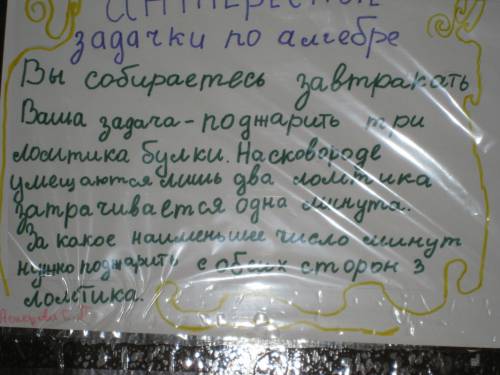 задачки по алгебре
Вы собираетесь завтракать
Ваша задача - поджарить три
ломтика булки. На сковороде
умещаются лишь два ломтика
затрачивается одна минута.
За какое наименьшее число минут
нужно поджарить с обеих сторон 3
ломтика.